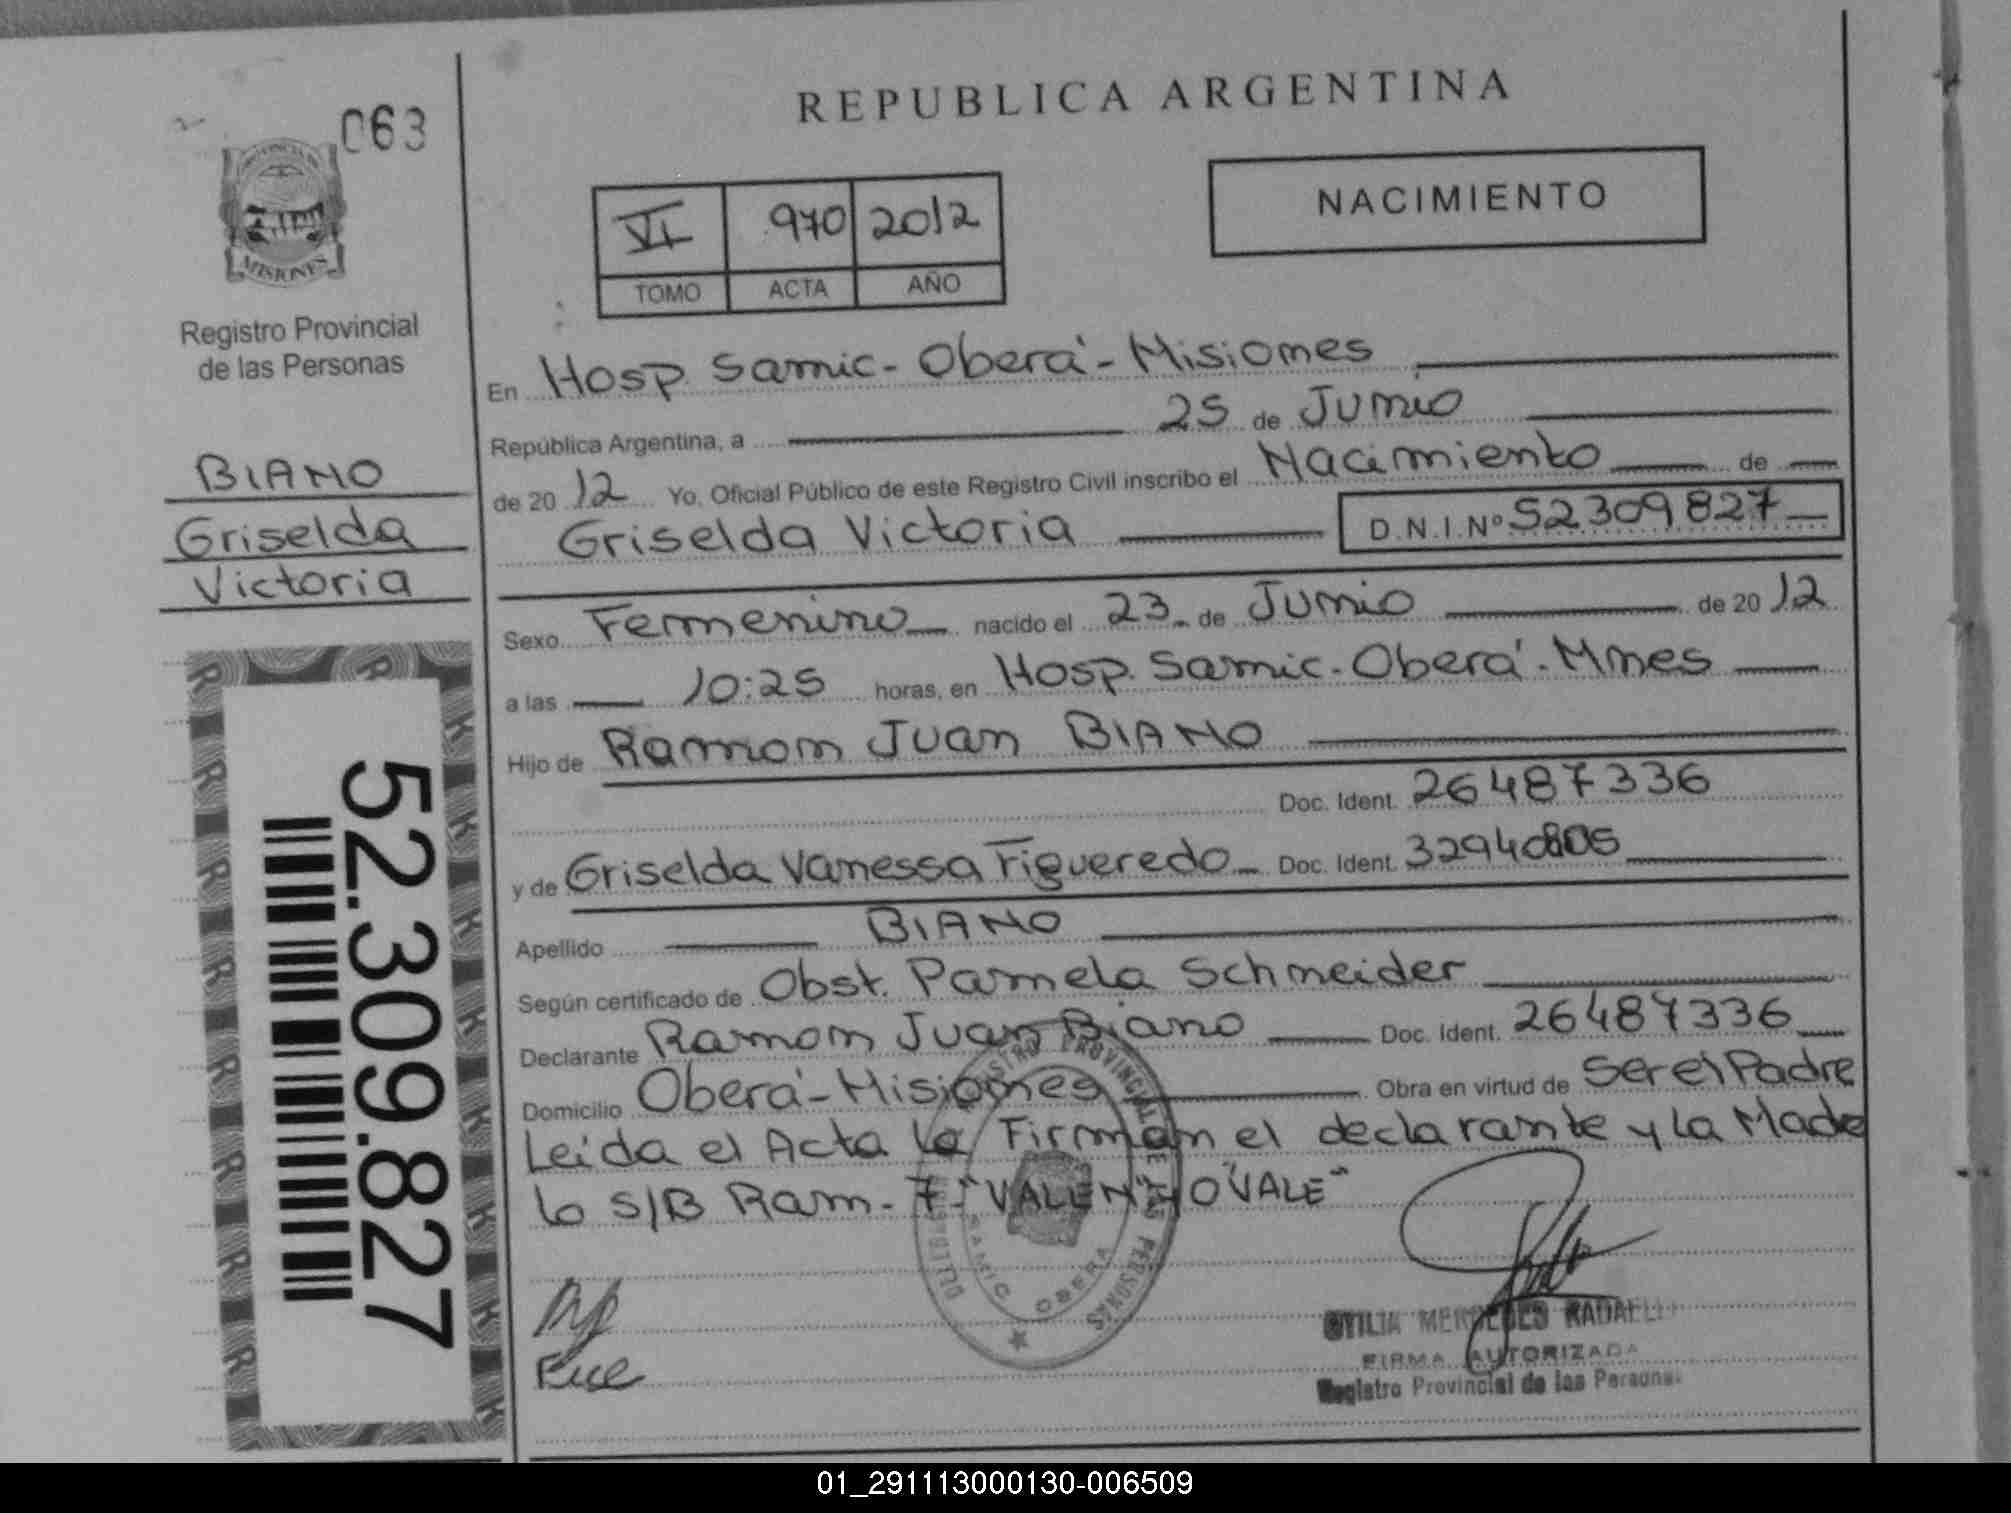 063
PROVINCIA DE
MISIONES
Registro Provincial
de las Personas
BIANO
Griselda
Victoria
52.309.827
REPUBLICA ARGENTINA
VI 970 2012
TOMO ACTA AÑO
NACIMIENTO
En Hosp. Samic - Oberá - Misiones
República Argentina, a 25 de Junio
de 20 12 Yo, Oficial Público de este Registro Civil inscribo el Nacimiento de
Griselda Victoria D.N.I.Nº 52309827
Sexo Femenino nacido el 23 de Junio de 20 12
a las 10:25 horas, en Hosp. Samic - Oberá - Mnes
Hijo de Ramon Juan BIANO
Doc. Ident. 26487336
y de Griselda Vanessa Figueredo Doc. Ident.
Apellido BIANO
Según certificado de Obst. Pamela Schneider
Declarante Ramon Juan Biano Doc. Ident. 26487336
Domicilio Oberá - Misiones Obra en virtud de Ser el Padre
Leída el Acta la Firman el declarante y la Madre
lo S/B Ram - 7 -
"VALE"
REGISTRO PROVINCIAL DE LAS PERSONAS
SAMIC OBERA
OTILIA MERCEDES RADAELLI
FIRMA AUTORIZADA
Registro Provincial de las Personas
01_291113000130-006509